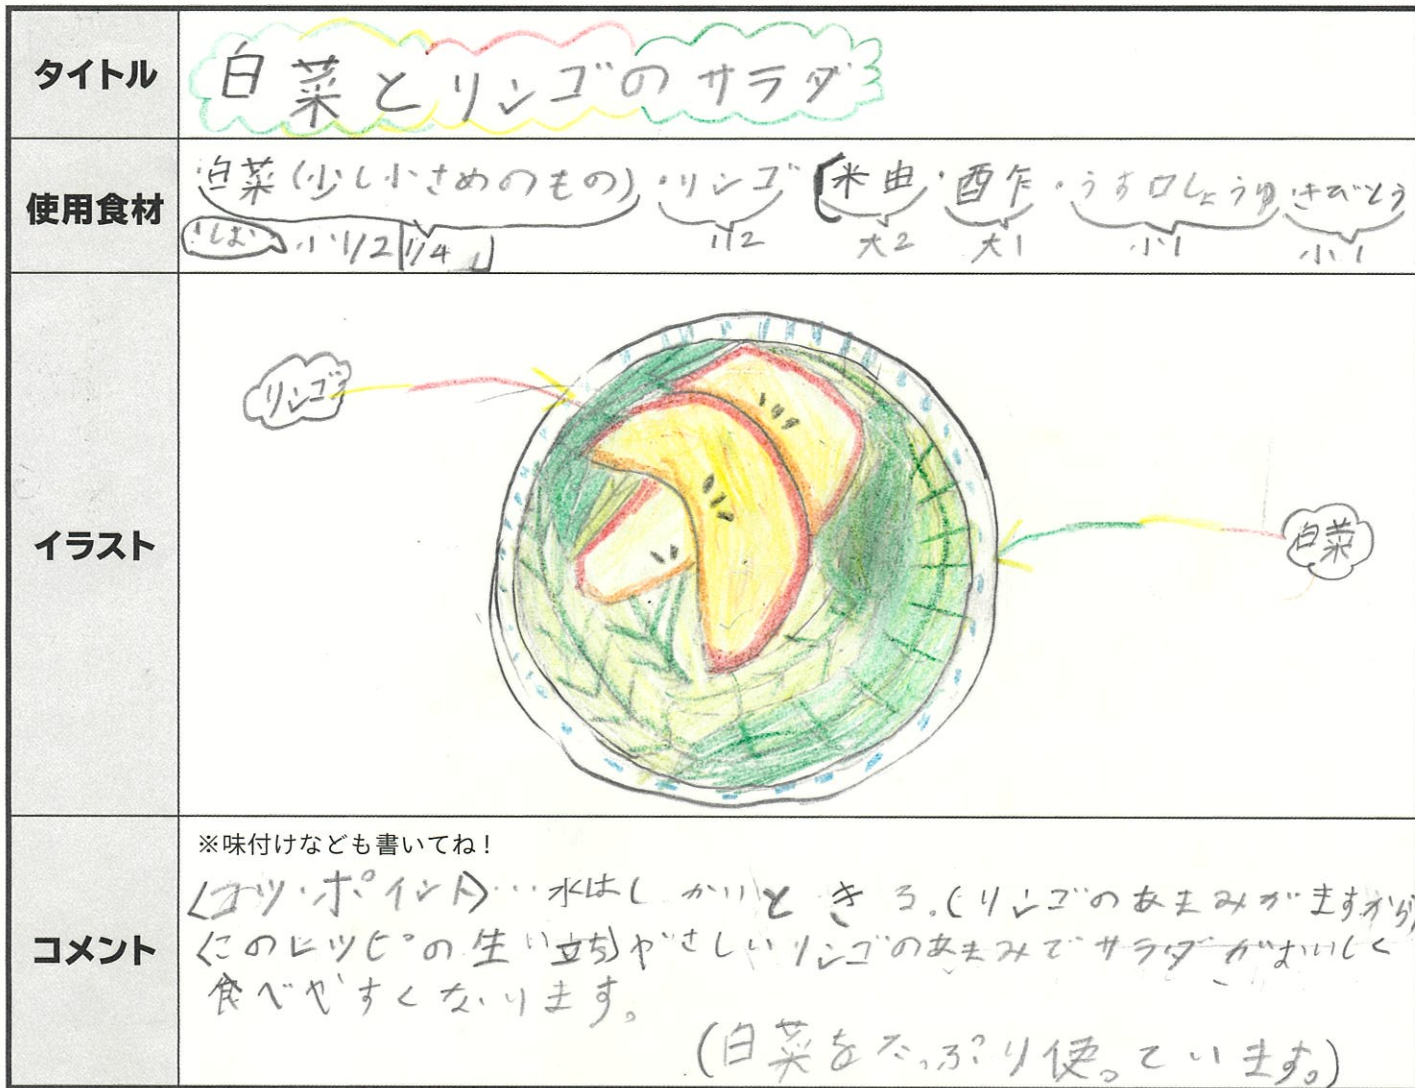 タイトル
白菜とリンゴのサラダ
使用食材
白菜(少し小さめのもの)・リンゴ〔米由・酢・うす口しょうゆ・きびとう
・しお 小1/2 1/4 1/2 大2 大1 小1 小1
イラスト
リンゴ
白菜
コメント
※味付けなども書いてね！
〈コツ・ポイント〉…水はしっかりときる。(リンゴのあまみがますから)
〈このレシピの生い立ち〉やさしいリンゴのあまみでサラダがおいしく
食べやすくなります。
(白菜をたっぷり使っています。)